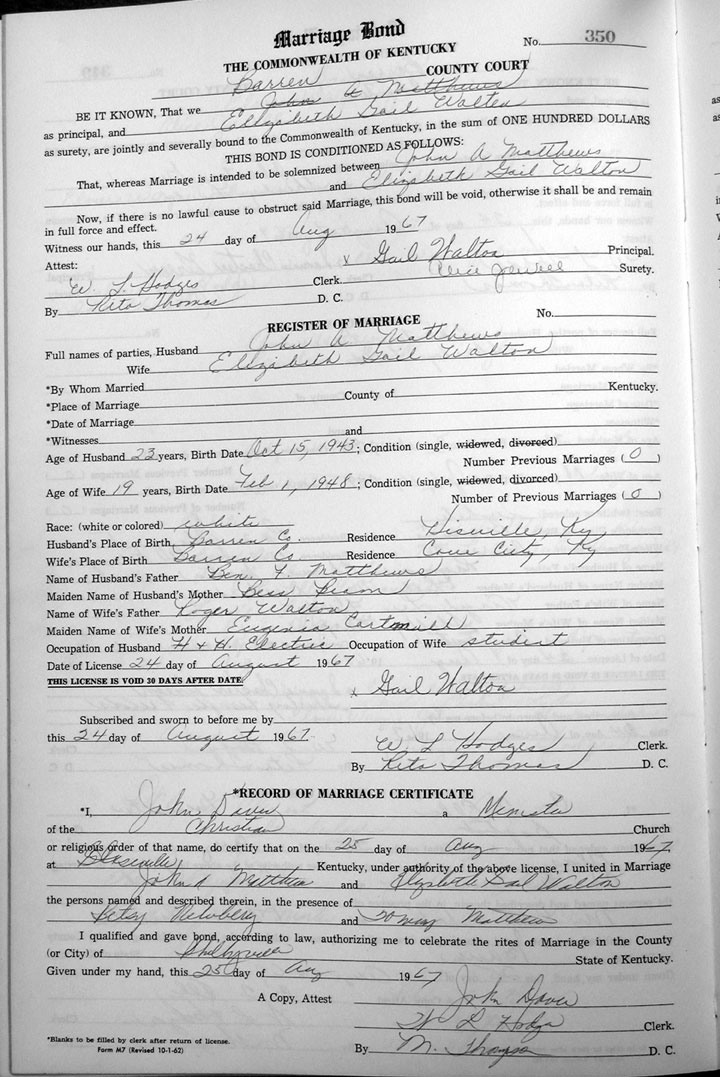 Marriage Bond
No. 350
THE COMMONWEALTH OF KENTUCKY
Barren COUNTY COURT
BE IT KNOWN, That we John A Matthews
as principal, and Ellyzabeth Gail Walten
as surety, are jointly and severally bound to the Commonwealth of Kentucky, in the sum of ONE HUNDRED DOLLARS
THIS BOND IS CONDITIONED AS FOLLOWS:
That, whereas Marriage is intended to be solemnized between John A Matthews
and Elizabeth Gail Walton
Now, if there is no lawful cause to obstruct said Marriage, this bond will be void, otherwise it shall be and remain
in full force and effect.
Witness our hands, this 24 day of Aug 1967
Attest: x Gail Walton Principal.
W. L. Hodges Clerk. Surety.
By Reta Thomas D. C.
REGISTER OF MARRIAGE No.
Full names of parties, Husband John A Matthews
Wife Elizabeth Gail Walton
*By Whom Married
*Place of Marriage County of Kentucky.
*Date of Marriage
*Witnesses and
Age of Husband 23 years, Birth Date Oct 15, 1943; Condition (single, widowed, divorced)
Number Previous Marriages (0)
Age of Wife 19 years, Birth Date Feb 1, 1948; Condition (single, widowed, divorced)
Number of Previous Marriages (0)
Race: (white or colored) white
Husband's Place of Birth Barren Co. Residence Hiseville, Ky
Wife's Place of Birth Barren Co Residence Cave City, Ky
Name of Husband's Father Ben F. Matthews
Maiden Name of Husband's Mother Bess
Name of Wife's Father Roger Walton
Maiden Name of Wife's Mother Eugenia Cartmill
Occupation of Husband H & H. Electric Occupation of Wife student
Date of License 24 day of August 1967
THIS LICENSE IS VOID 30 DAYS AFTER DATE
x Gail Walton
Subscribed and sworn to before me by
this 24 day of August 1967.
W. L Hodges Clerk.
By Reta Thomas D. C.
*RECORD OF MARRIAGE CERTIFICATE
*I, John Davis a Minister
of the Christian Church
or religious order of that name, do certify that on the 25 day of Aug 1967,
at Kentucky, under authority of the above license, I united in Marriage
John A Matthew and Elizabeth Gail Walton
the persons named and described therein, in the presence of
Betsy Newberry and Matthew
I qualified and gave bond, according to law, authorizing me to celebrate the rites of Marriage in the County
(or City) of Shelbyville State of Kentucky.
Given under my hand, this 25 day of Aug 1967
John Davis
A Copy, Attest W L Hodges Clerk.
By M. Thomas D. C.
*Blanks to be filled by clerk after return of license.
Form M7 (Revised 10-1-62)